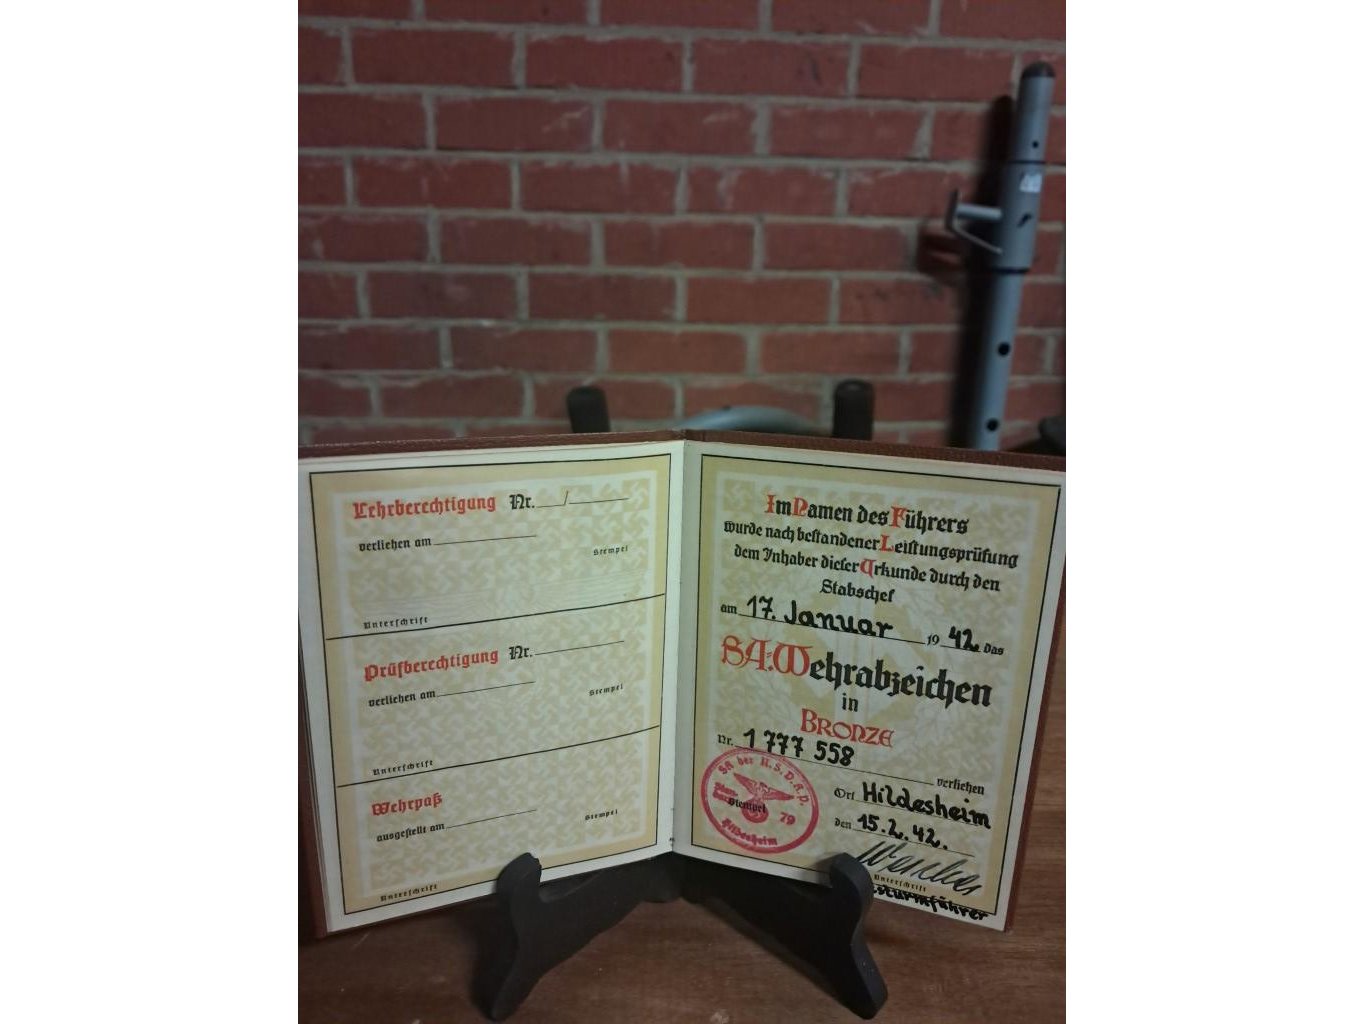 Lehrberechtigung Nr. /
verliehen am
Stempel
Unterschrift
Prüfberechtigung Nr.
verliehen am
Stempel
Unterschrift
Wehrpaß
ausgestellt am
Stempel
Unterschrift
Im Namen des Führers
wurde nach bestandener Leistungsprüfung
dem Inhaber dieser Urkunde durch den
Stabschef
am 17. Januar 19 42 das
SA-Wehrabzeichen
in
BRONZE
Nr. 1 777 558
verliehen
SA der N.S.D.A.P.
Stempel
79
Hildesheim
Ort Hildesheim
den 15.2.42.
Unterschrift
sturmführer